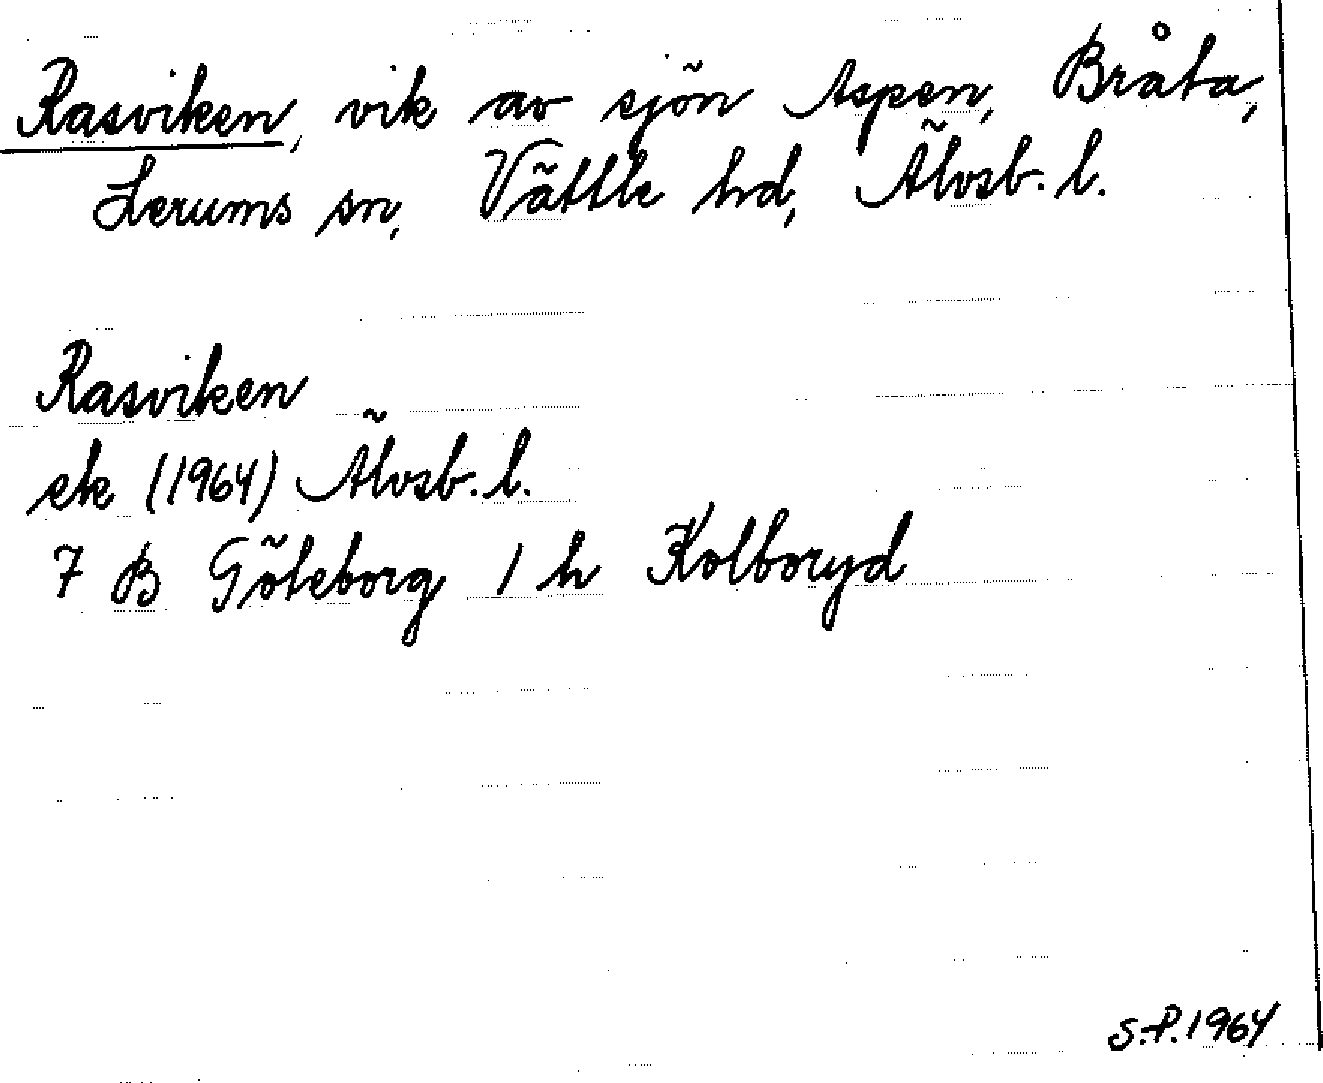 Rasviken, vik av sjön Aspen, Bråta,
Lerums sn, Vättle hd, Älvsb. l.
Rasviken
ek (1964) Älvsb. l.
7 B Göteborg 1 h Kolboryd
S.P. 1964